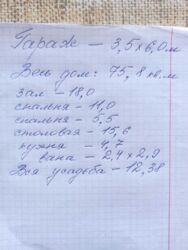 Гараж – 3,5х6,0м
Весь дом: 75,8 кв.м
зал – 18,0
спальня – 11,0
спальня – 5,5
столовая – 15,6
кухня – 4,7
вана – 2,4х2,9
Вся усадьба – 12,38